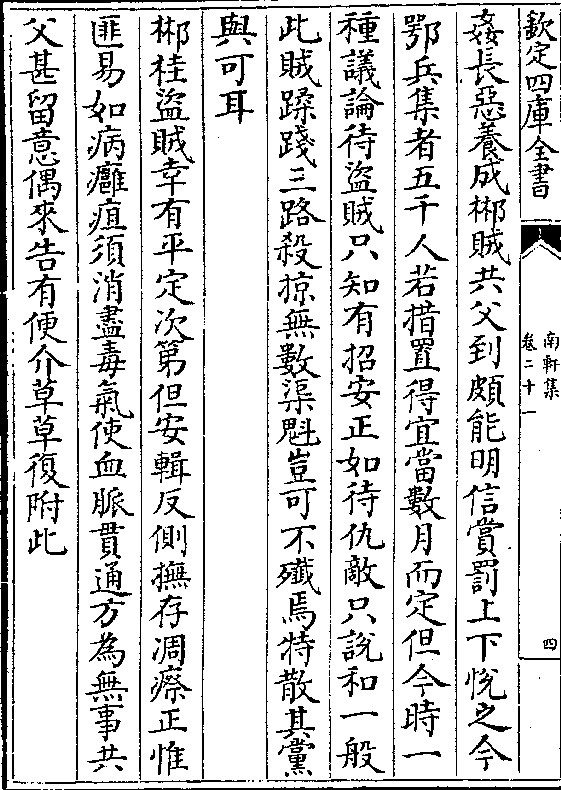 欽定四庫全書
南軒集
卷二十一
四
姦長惡養成郴賊共父到頗能明信賞罰上下悅之今
鄂兵集者五千人若措置得宜當數月而定但今時一
種議論待盜賊只知有招安正如待仇敵只說和一般
此賊蹂踐三路殺掠無數渠魁豈可不殲焉特散其黨
與可耳
郴桂盜賊幸有平定次第但安輯反側撫存凋瘵正惟
匪易如病癰疽須消盡毒氣使血脈貫通方為無事共
父甚留意偶來告有便介草草復附此